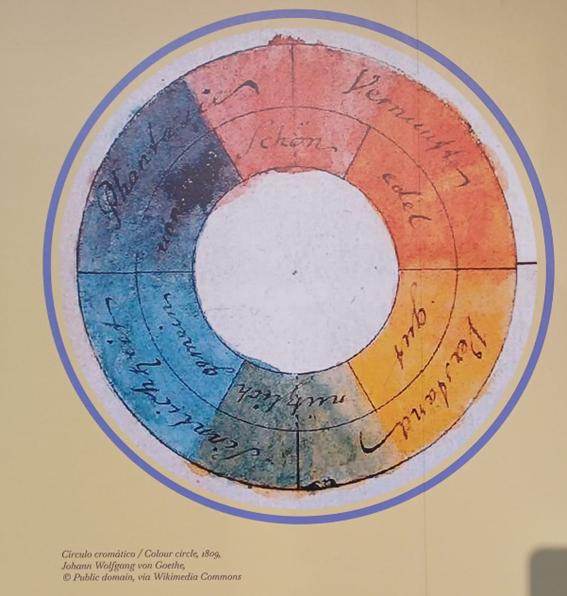 Phantasie
Vernunft
Schön
edel
gut
Verstand
nützlich
gemein
Sinnlichkeit
Círculo cromático / Colour circle, 1809,
Johann Wolfgang von Goethe,
© Public domain, via Wikimedia Commons